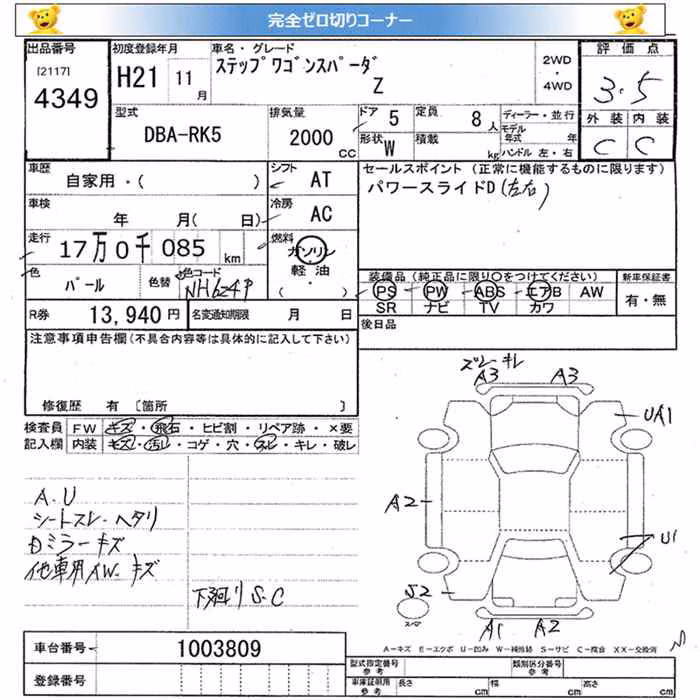 完全ゼロ切りコーナー
出品番号 初度登録年月 車名・グレード 評価点
[2117] 4349 H21 11月 ステップワゴンスパーダ Z 2WD・4WD 3.5
型式 排気量 ドア 5 定員 8人 ディーラー・並行 外装 内装
DBA-RK5 2000CC 形状 W 積載 kg モデル年式 年 C C
ハンドル 左・右
車歴 シフト セールスポイント(正常に機能するものに限ります)
自家用・( ) AT パワースライドD(左右)
車検 年 月(日) 冷房 AC
走行 17万0千085km 燃料 ガソリン
軽・油
・( )
色 パール 色替 色コード NH624P
装備品(純正品に限り○をつけてください) 新車保証書
PS PW ABS エアB AW 有・無
SR ナビ TV カワ
R券 13,940円 名変通知期限 月 日 後日品
注意事項申告欄(不具合内容等は具体的に記入して下さい)
修復歴 有 [箇所 ]
検査員 FW キズ・飛石・ヒビ割・リペア跡・×要
記入欄 内装 キズ・汚レ・コゲ・穴・スレ・キレ・破レ
ズレ キレ
A3 A3
UA1
A2
U1
S2
スペア
A1 A2
A.U
シートスレ・ヘタリ
Dミラーキズ
他車用AW・キズ
下廻りS.C
A-キズ E-エクボ U-凹み W-補修跡 S-サビ C-腐食 XX-交換済
車台番号 1003809
登録番号
型式指定番号 参考 類別区分番号 参考
車庫証明用 参考 長さ cm 幅 cm 高さ cm